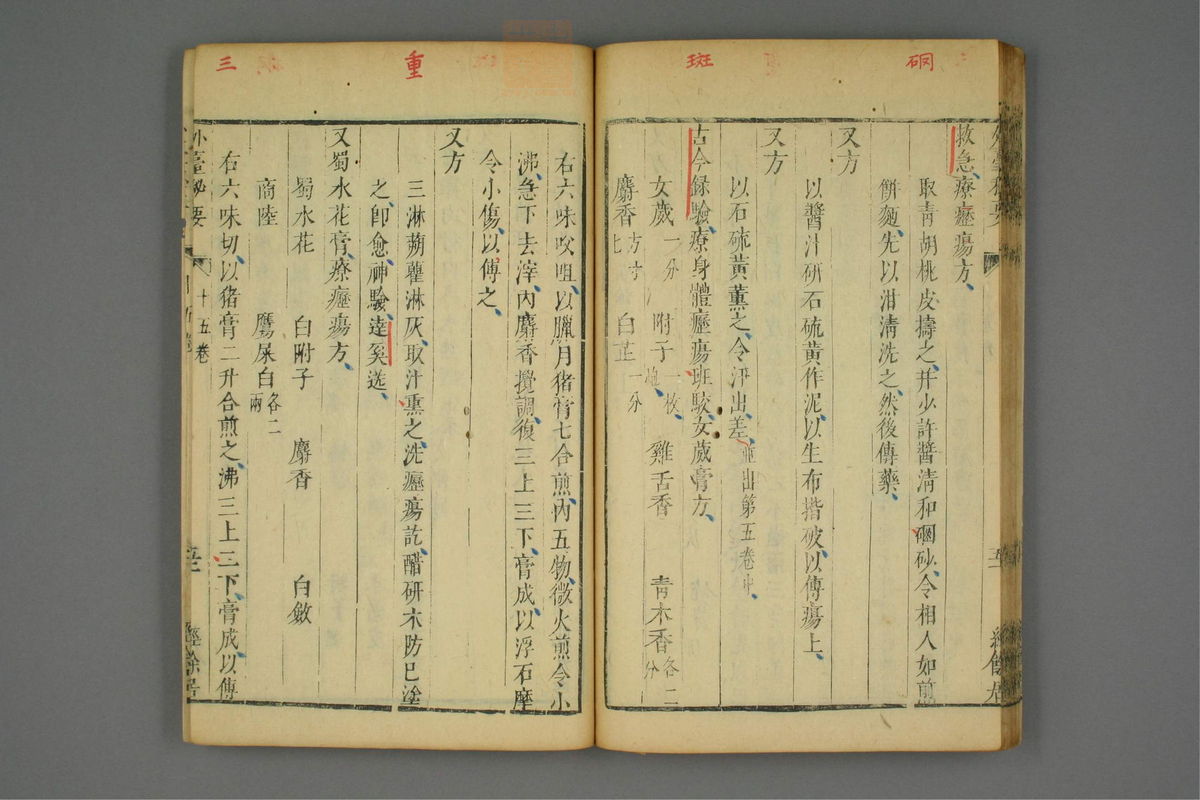 硇
斑
救急療癧瘍方
取青胡桃皮擣之并少許醬清和硇砂令相人如煎
餅麵先以泔清洗之然後傅藥
又方
以醬汁研石硫黄作泥以生布揩破以傅瘍上
又方
以石硫黄薰之令汗出差並出第五卷中
古今録驗療身體癧瘍班駮女葳膏方
女葳一分 附子一枚炮 雞舌香 青木香各二分
麝香方寸匕 白芷一分
重
三
右六味㕮咀以臘月猪膏七合煎内五物微火煎令小
沸急下去滓内麝香攪調復三上三下膏成以浮石摩
令小傷以傅之
又方
三淋蒴藋淋灰取汁熏之洗癧瘍訖醋研木防巳塗
之即愈神驗逹奚送
又蜀水花膏療癧瘍方
蜀水花 白附子 麝香 白斂
商陸 鷹屎白各二兩
右六味切以猪膏二升合煎之沸三上三下膏成以傅
外臺秘要 十五卷 經餘居